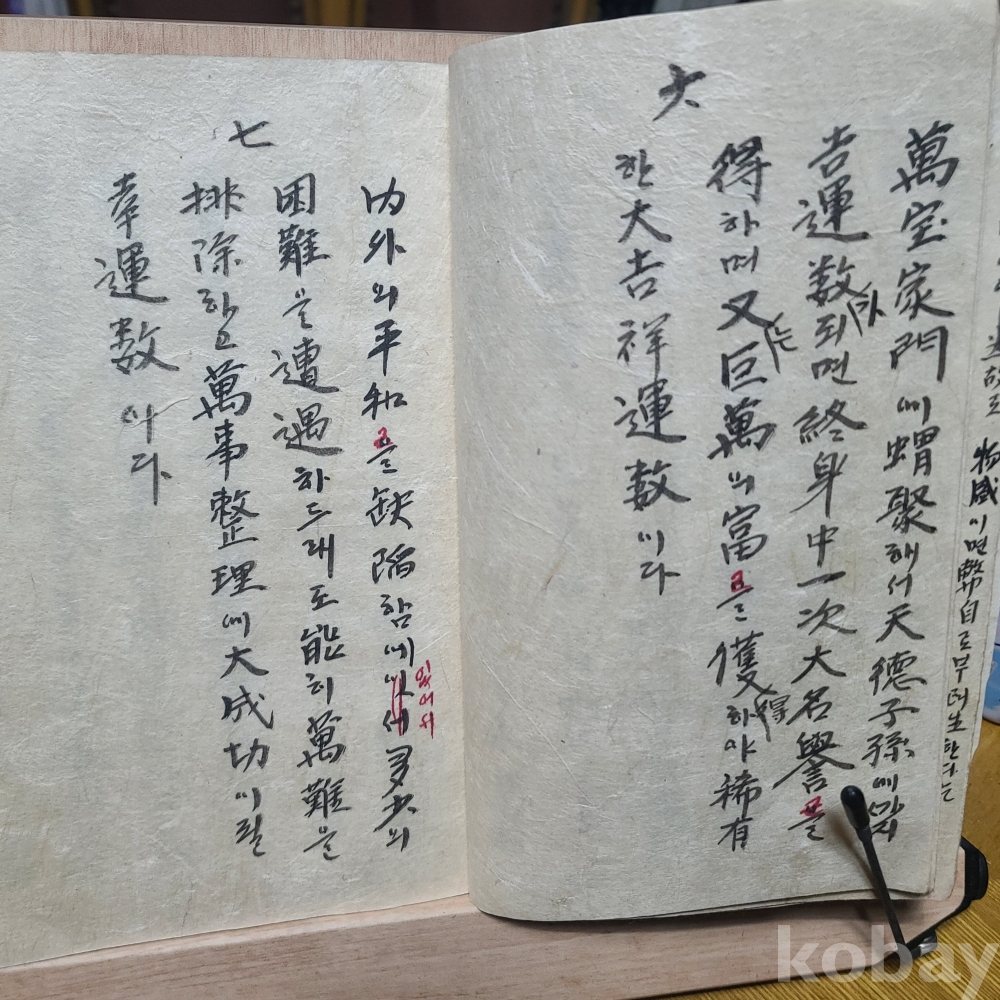 物盛이면弊自로부터生한다는
萬宝家門에蝟聚해서天德子孫에까지
吉運数되면終身中一次大名譽를
得하며又는巨萬의富를獲得하야稀有
한大吉祥運数이다
六
內外의平和를缺陷함에있어서多少의
困難을遭遇하드래도能히萬難을
排除하고萬事整理에大成功이될
幸運数이다
七
kobay